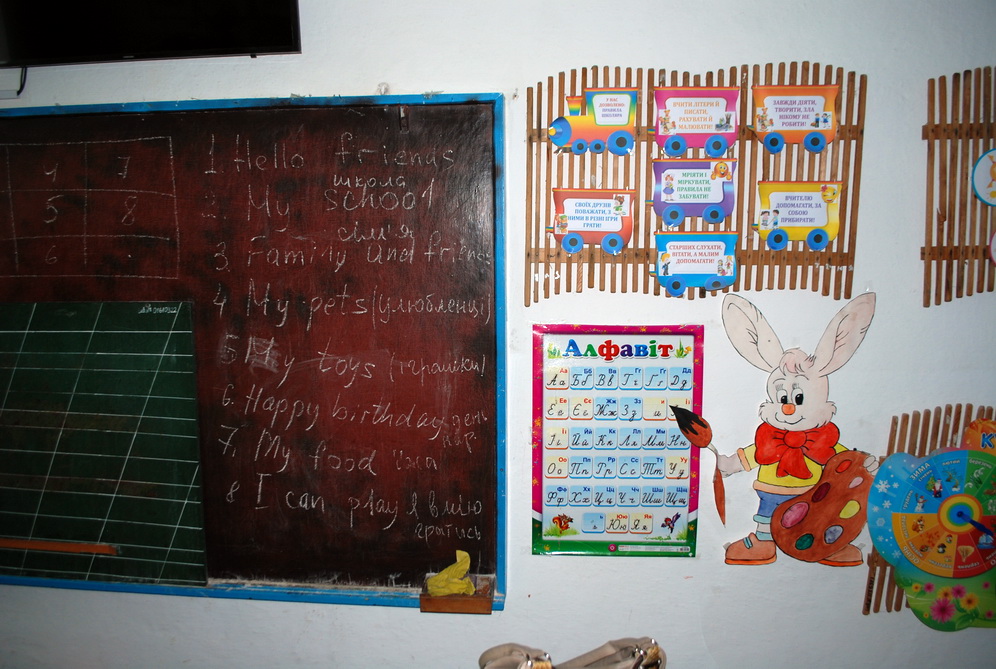 4 7
5 8
6
1. Hello friends
школа
2 My School
сім'я
3. Family and friends
4. My pets (улюбленці)
5 My toys (іграшки)
6. Happy birthday день
нар.
7. My food їжа
8 I can play Я вмію
гратись
У НАС
ДОЗВОЛЕНО
ПРАВИЛА
ШКОЛЯРА
ВЧИТИ ЛІТЕРИ Й
ПИСАТИ,
РАХУВАТИ Й
МАЛЮВАТИ!
ЗАВЖДИ ДІЯТИ,
ТВОРИТИ, ЗЛА
НІКОМУ НЕ
РОБИТИ!
МРІЯТИ І
МІРКУВАТИ,
ПРАВИЛА НЕ
ЗАБУВАТИ!
СВОЇХ ДРУЗІВ
ПОВАЖАТИ, З
НИМИ В РІЗНІ ІГРИ
ГРАТИ!
ВЧИТЕЛЮ
ДОПОМАГАТИ, ЗА
СОБОЮ
ПРИБИРАТИ!
СТАРШИХ СЛУХАТИ,
ВІТАТИ, А МАЛИМ
ДОПОМАГАТИ!
Алфавіт
Аа Бб Вв Гг Ґґ Дд
Ее Єє Жж Зз Ии Іі
Її Йй Кк Лл Мм Нн
Оо Пп Рр Сс Тт Уу
Фф Хх Цц Чч Шш Щщ
ь Юю Яя
ЗИМА